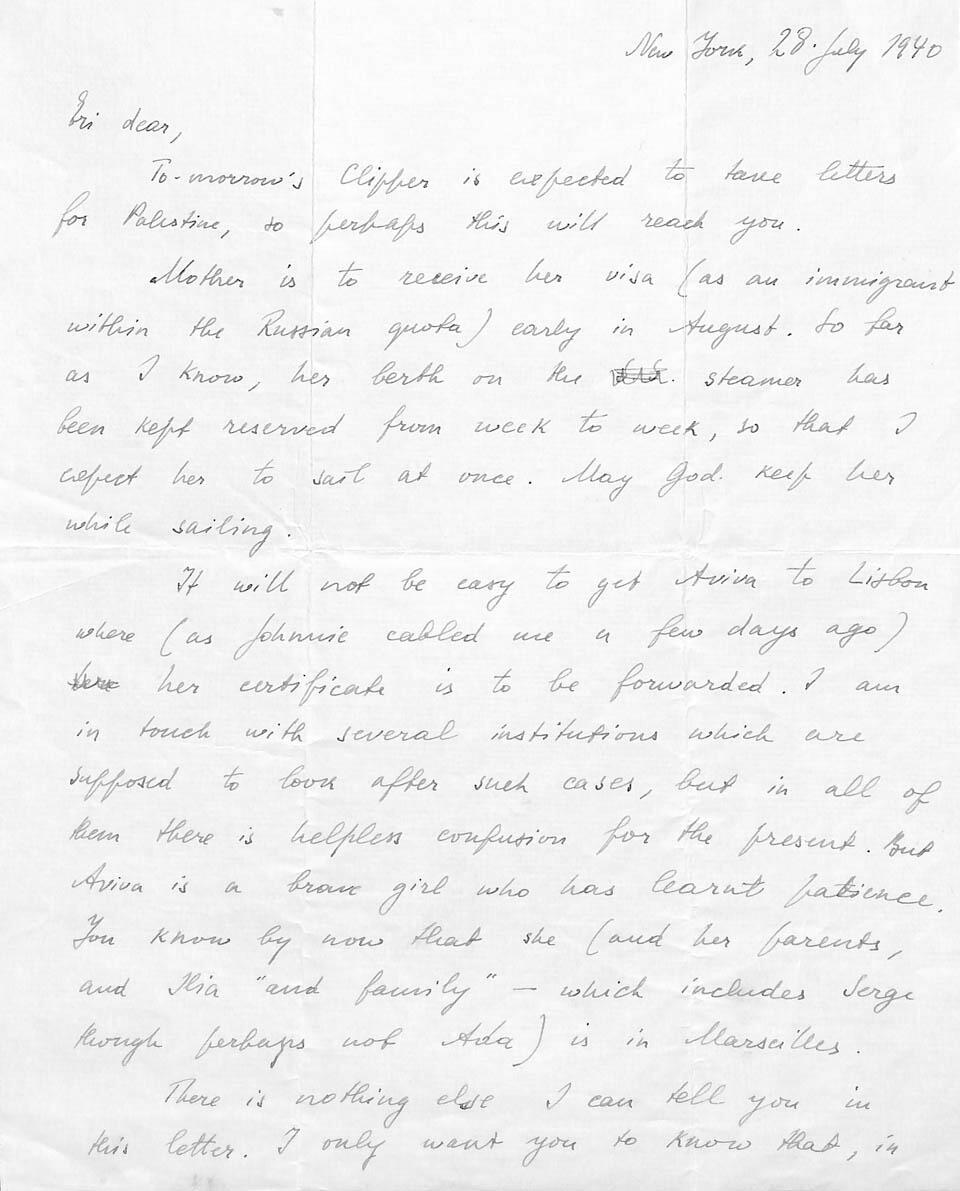 New York, 28 July 1940
Eri dear,
To-morrow's Clipper is expected to take letters
for Palestine, so perhaps this will reach you.
Mother is to receive her visa (as an immigrant
within the Russian quota) early in August. So far
as I know, her berth on the steamer has
been kept reserved from week to week, so that I
expect her to sail at once. May God keep her
while sailing.
It will not be easy to get Aviva to Lisbon
where (as Johnnie cabled me a few days ago)
her certificate is to be forwarded. I am
in touch with several institutions which are
supposed to look after such cases, but in all of
them there is helpless confusion for the present. But
Aviva is a brave girl who has learnt patience.
You know by now that she (and her parents,
and Ilia "and family" – which includes Serge
though perhaps not Ada) is in Marseilles.
There is nothing else I can tell you in
this letter. I only want you to know that, in